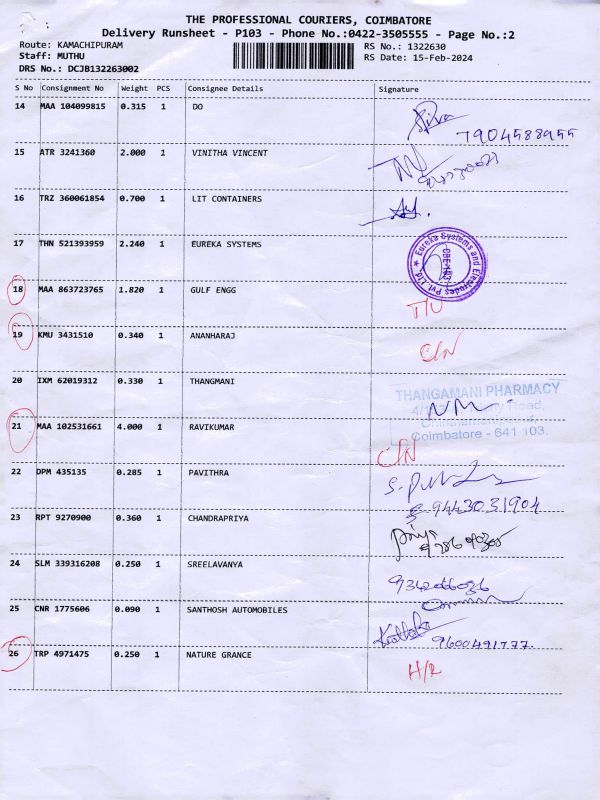 THE PROFESSIONAL COURIERS, COIMBATORE
Delivery Runsheet - P103 - Phone No.:0422-3505555 - Page No.:2
Route: KAMACHIPURAM RS No.: 1322630
Staff: MUTHU RS Date: 15-Feb-2024
DRS No.: DCJB132263002
S No Consignment No Weight PCS Consignee Details Signature
14 MAA 104099815 0.315 1 DO
7904588955
15 ATR 3241360 2.000 1 VINITHA VINCENT
16 TRZ 360061854 0.700 1 LIT CONTAINERS
17 THN 521393959 2.240 1 EUREKA SYSTEMS
Eureka Systems and Electrodes Pvt. Ltd. ★
CBE-103
18 MAA 863723765 1.820 1 GULF ENGG
19 KMU 3431510 0.340 1 ANANHARAJ
C/N
20 IXM 62019312 0.330 1 THANGMANI
THANGAMANI PHARMACY
Road,
Coimbatore - 641 103.
21 MAA 102531661 4.000 1 RAVIKUMAR
C/N
22 DPM 435135 0.285 1 PAVITHRA
9443031904
23 RPT 9270900 0.360 1 CHANDRAPRIYA
24 SLM 339316208 0.250 1 SREELAVANYA
25 CNR 1775606 0.090 1 SANTHOSH AUTOMOBILES
9600491777.
26 TRP 4971475 0.250 1 NATURE GRANCE
H/R